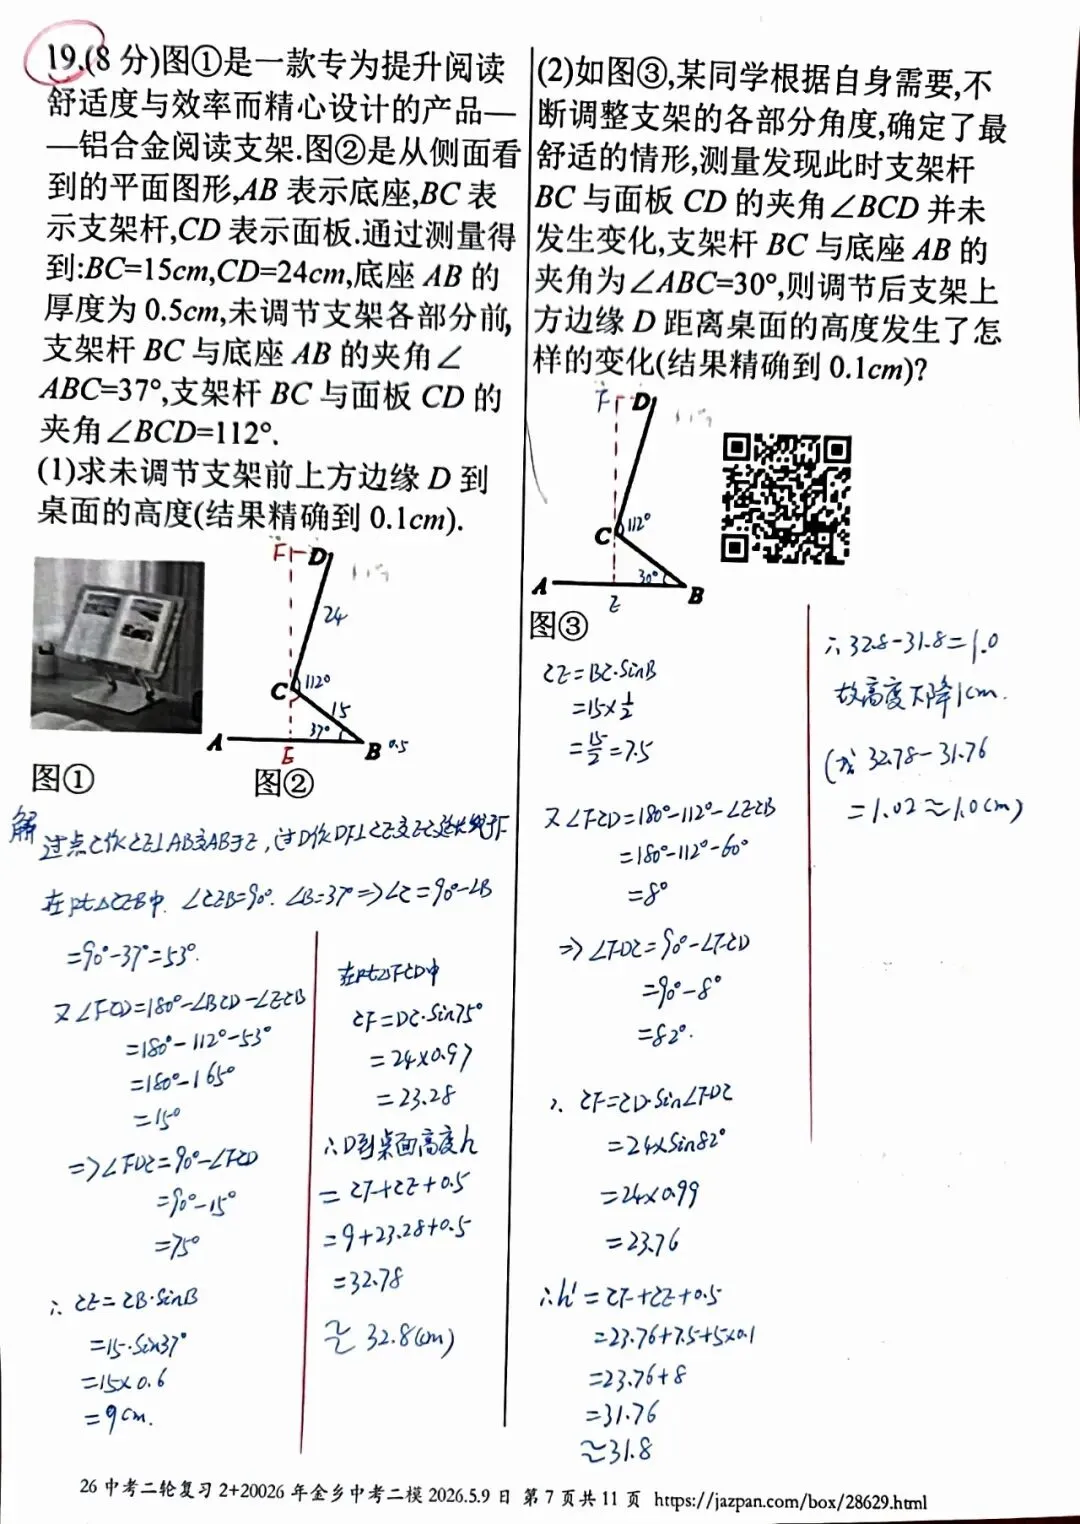 19.(8分)图①是一款专为提升阅读
舒适度与效率而精心设计的产品—
—铝合金阅读支架.图②是从侧面看
到的平面图形,AB 表示底座,BC 表
示支架杆,CD 表示面板.通过测量得
到:BC=15cm,CD=24cm,底座 AB 的
厚度为 0.5cm,未调节支架各部分前,
支架杆 BC 与底座 AB 的夹角∠
ABC=37°,支架杆 BC 与面板 CD 的
夹角∠BCD=112°.
(1)求未调节支架前上方边缘 D 到
桌面的高度(结果精确到 0.1cm).
F
D
24
C
112°
15
37°
A
E
B
0.5
图①
图②
解 过点C作CE⊥AB交AB于E,过D作DF⊥CE交EC延长线于F
在Rt△CEB中. ∠CEB=90°. ∠B=37°=>∠C=90°-∠B
=90°-37°=53°.
又∠FCD=180°-∠BCD-∠ECB
=180°-112°-53°
=180°-165°
=15°
=>∠FDC=90°-∠FCD
=90°-15°
=75°
∴ CE=CB·SinB
=15·Sin37°
=15×0.6
=9cm.
在Rt△FCD中
CF=DC·Sin75°
=24×0.97
=23.28
∴D到桌面高度h
=CF+CE+0.5
=9+23.28+0.5
=32.78
≈32.8(cm)
(2)如图③,某同学根据自身需要,不
断调整支架的各部分角度,确定了最
舒适的情形,测量发现此时支架杆
BC 与面板 CD 的夹角∠BCD 并未
发生变化,支架杆 BC 与底座 AB 的
夹角为∠ABC=30°,则调节后支架上
方边缘 D 距离桌面的高度发生了怎
样的变化(结果精确到 0.1cm)?
F
D
C
112°
30°
A
E
B
图③
CE=BC·SinB
=15×1/2
=15/2=7.5
又∠FCD=180°-112°-∠ECB
=180°-112°-60°
=8°
=>∠FDC=90°-∠FCD
=90°-8°
=82°.
∴ CF=CD·Sin∠FDC
=24×Sin82°
=24×0.99
=23.76
∴h'=CF+CE+0.5
=23.76+7.5+5×0.1
=23.76+8
=31.76
≈31.8
∴32.8-31.8=1.0
故高度下降1cm.
(或 32.78-31.76
=1.02≈1.0(cm)
26 中考二轮复习 2+20026 年金乡中考二模 2026.5.9 日 第 7 页共 11 页 https://jazpan.com/box/28629.html